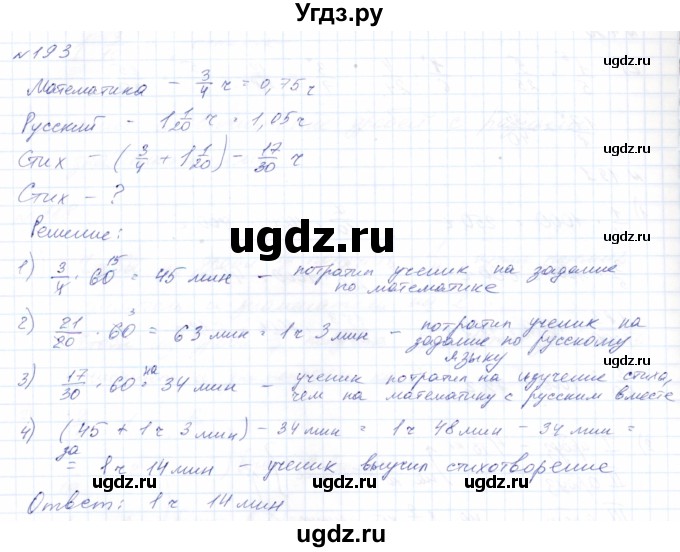 Угдз.ру
№193
Математика - 3/4 ч = 0,75 ч
Русский - 1 1/20 ч = 1,05 ч
Стих - (3/4 + 1 1/20) - 17/30 ч
Стих - ?
Решение:
1) 3/4 · 60 15 = 45 мин - потратил ученик на задание
по математике
2) 21/20 · 60 3 = 63 мин = 1ч 3 мин - потратил ученик на
задание по русскому
языку
3) 17/30 · 60 = на 34 мин - ученик потратил на изучение стиха,
чем на математику с русским вместе
4) (45 + 1ч 3 мин) - 34 мин = 1ч 48 мин - 34 мин =
за
= 1ч 14 мин - ученик выучил стихотворение
Ответ: 1ч 14 мин
ugdz.ru
ugdz.ru
ugdz.ru
ugdz.ru
ugdz.ru
ugdz.ru
ugdz.ru
ugdz.ru
ugdz.ru
ugdz.ru
ugdz.ru